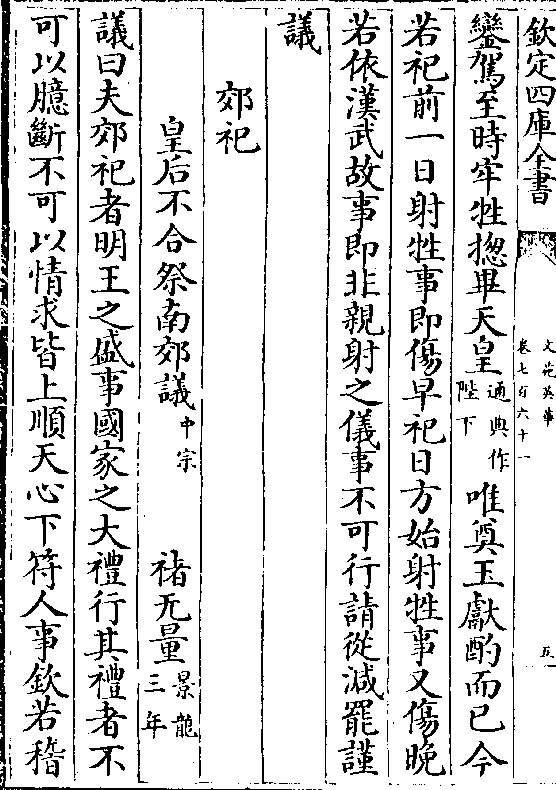 欽定四庫全書
文苑英華
卷七百六十一
五
鑾駕至時牢牲摠畢天皇通典作陛下唯奠玉獻酌而已今
若祀前一日射牲事即傷早祀日方始射牲事又傷晚
若依漢武故事即非親射之儀事不可行請從減罷謹
議
郊祀
皇后不合祭南郊議中宗　褚无量景龍三年
議曰夫郊祀者明王之盛事國家之大禮行其禮者不
可以臆斷不可以情求皆上順天心下符人事欽若稽